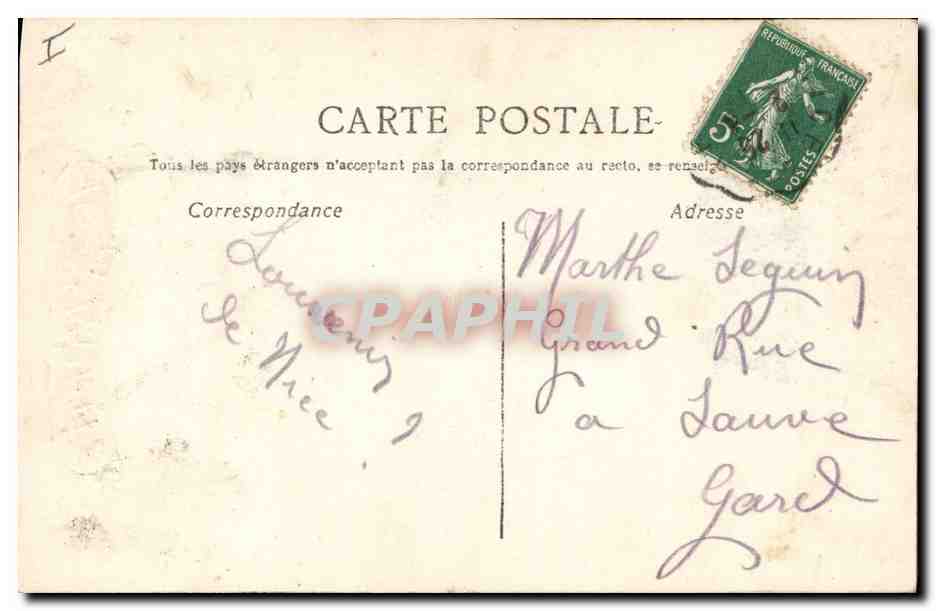 I
CARTE POSTALE
RÉPUBLIQUE FRANÇAISE
5
POSTES
Tous les pays étrangers n'acceptant pas la correspondance au recto, se rensei
Correspondance
Adresse
Souvenir
de Nice
Marthe Seguin
Grand Rue
a Sauve
Gard
CPAPHIL